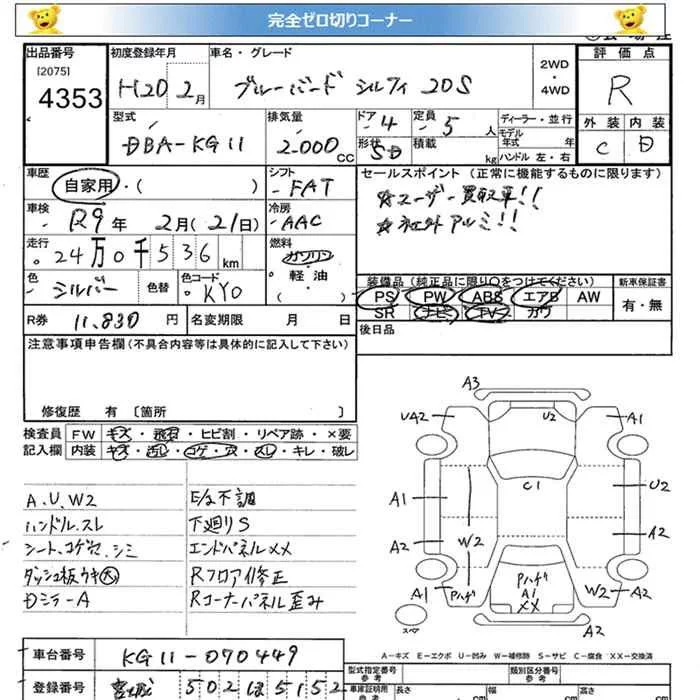 完全ゼロ切りコーナー
出品番号 初度登録年月 車名・グレード 2WD・4WD 評価点
[2075]
4353 H20 2月 ブルーバード シルフィ 20S R
型式 排気量 ドア 定員 ディーラー・並行 外装 内装
DBA-KG11 2000cc 4 5人 モデル年式 年 C D
形状 5D 積載 kg ハンドル 左・右
車歴 シフト セールスポイント(正常に機能するものに限ります)
自家用・( ) FAT ☆ユーザー買取車!!
車検 冷房 ☆社外アルミ!!
R9年 2月(21日) AAC
走行 燃料
24万0千536km ガソリン
軽・油
・( )
色 シルバー 色替 色コード KY0
装備品(純正品に限り○をつけてください) 新車保証書
PS PW ABS エアB AW 有・無
SR ナビ TV カワ
R券 11,830円 名変期限 月 日 後日品
注意事項申告欄(不具合内容等は具体的に記入して下さい)
修復歴 有 〔箇所 〕
検査員 FW キズ・飛石・ヒビ割・リペア跡・×要
記入欄 内装 キズ・汚レ・コゲ・穴・スレ・キレ・破レ
A、U、W2 E/g不調
ハンドル、スレ 下廻りS
シート、コゲ穴、シミ エンドパネルXX
ダッシュ板ウキ大 Rフロア修正
Dミラ-A Rコーナーパネル歪み
A3
UA2 U2 A1
C1
A1 U2
W2
A2 A2
A1 Pハゲ Pハゲ W2 A2
A1
XX
スペア A2
A-キズ E-エクボ U-凹み W-補修跡 S-サビ C-腐食 XX-交換済
車台番号 KG11-070449 型式指定番号 参考 類別区分番号 参考
登録番号 宮城 502 ほ 5152 車庫証明用 長さ cm 幅 cm 高さ cm